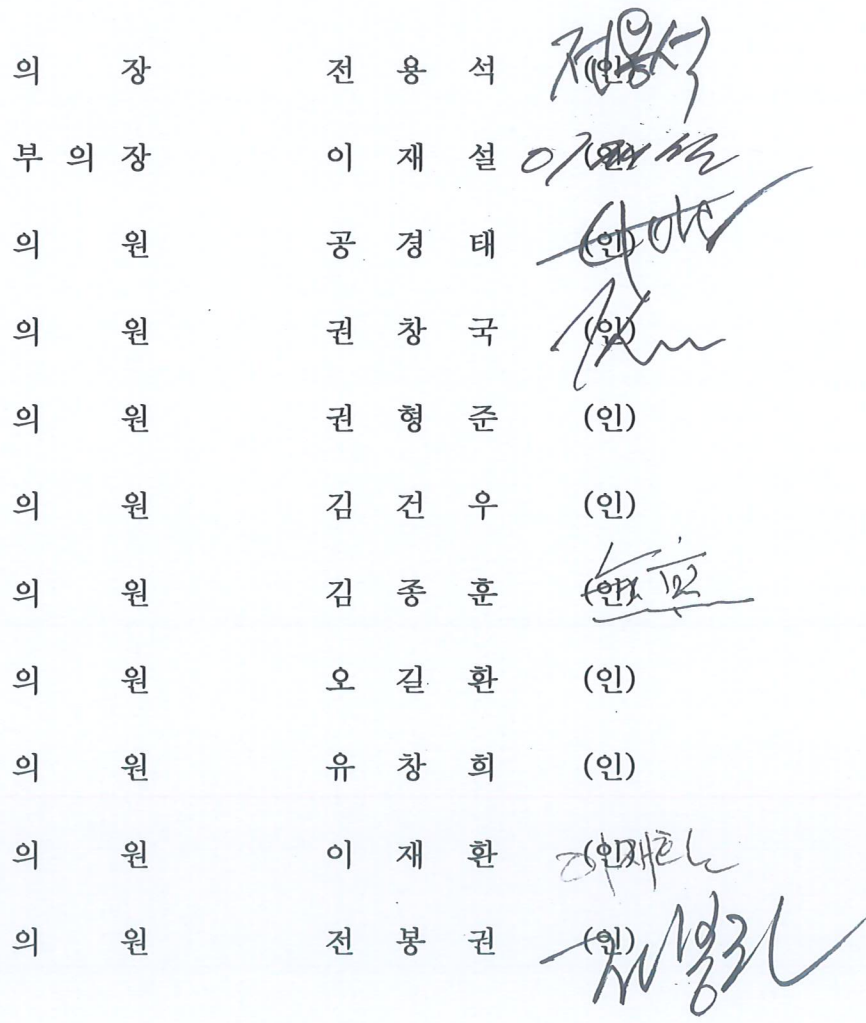 의 장 전 용 석 (인) 전용석
부 의 장 이 재 설 (인) 이재설
의 원 공 경 태 (인)
의 원 권 창 국 (인)
의 원 권 형 준 (인)
의 원 김 건 우 (인)
의 원 김 종 훈 (인)
의 원 오 길 환 (인)
의 원 유 창 희 (인)
의 원 이 재 환 (인) 이재환
의 원 전 봉 권 (인) 전봉권